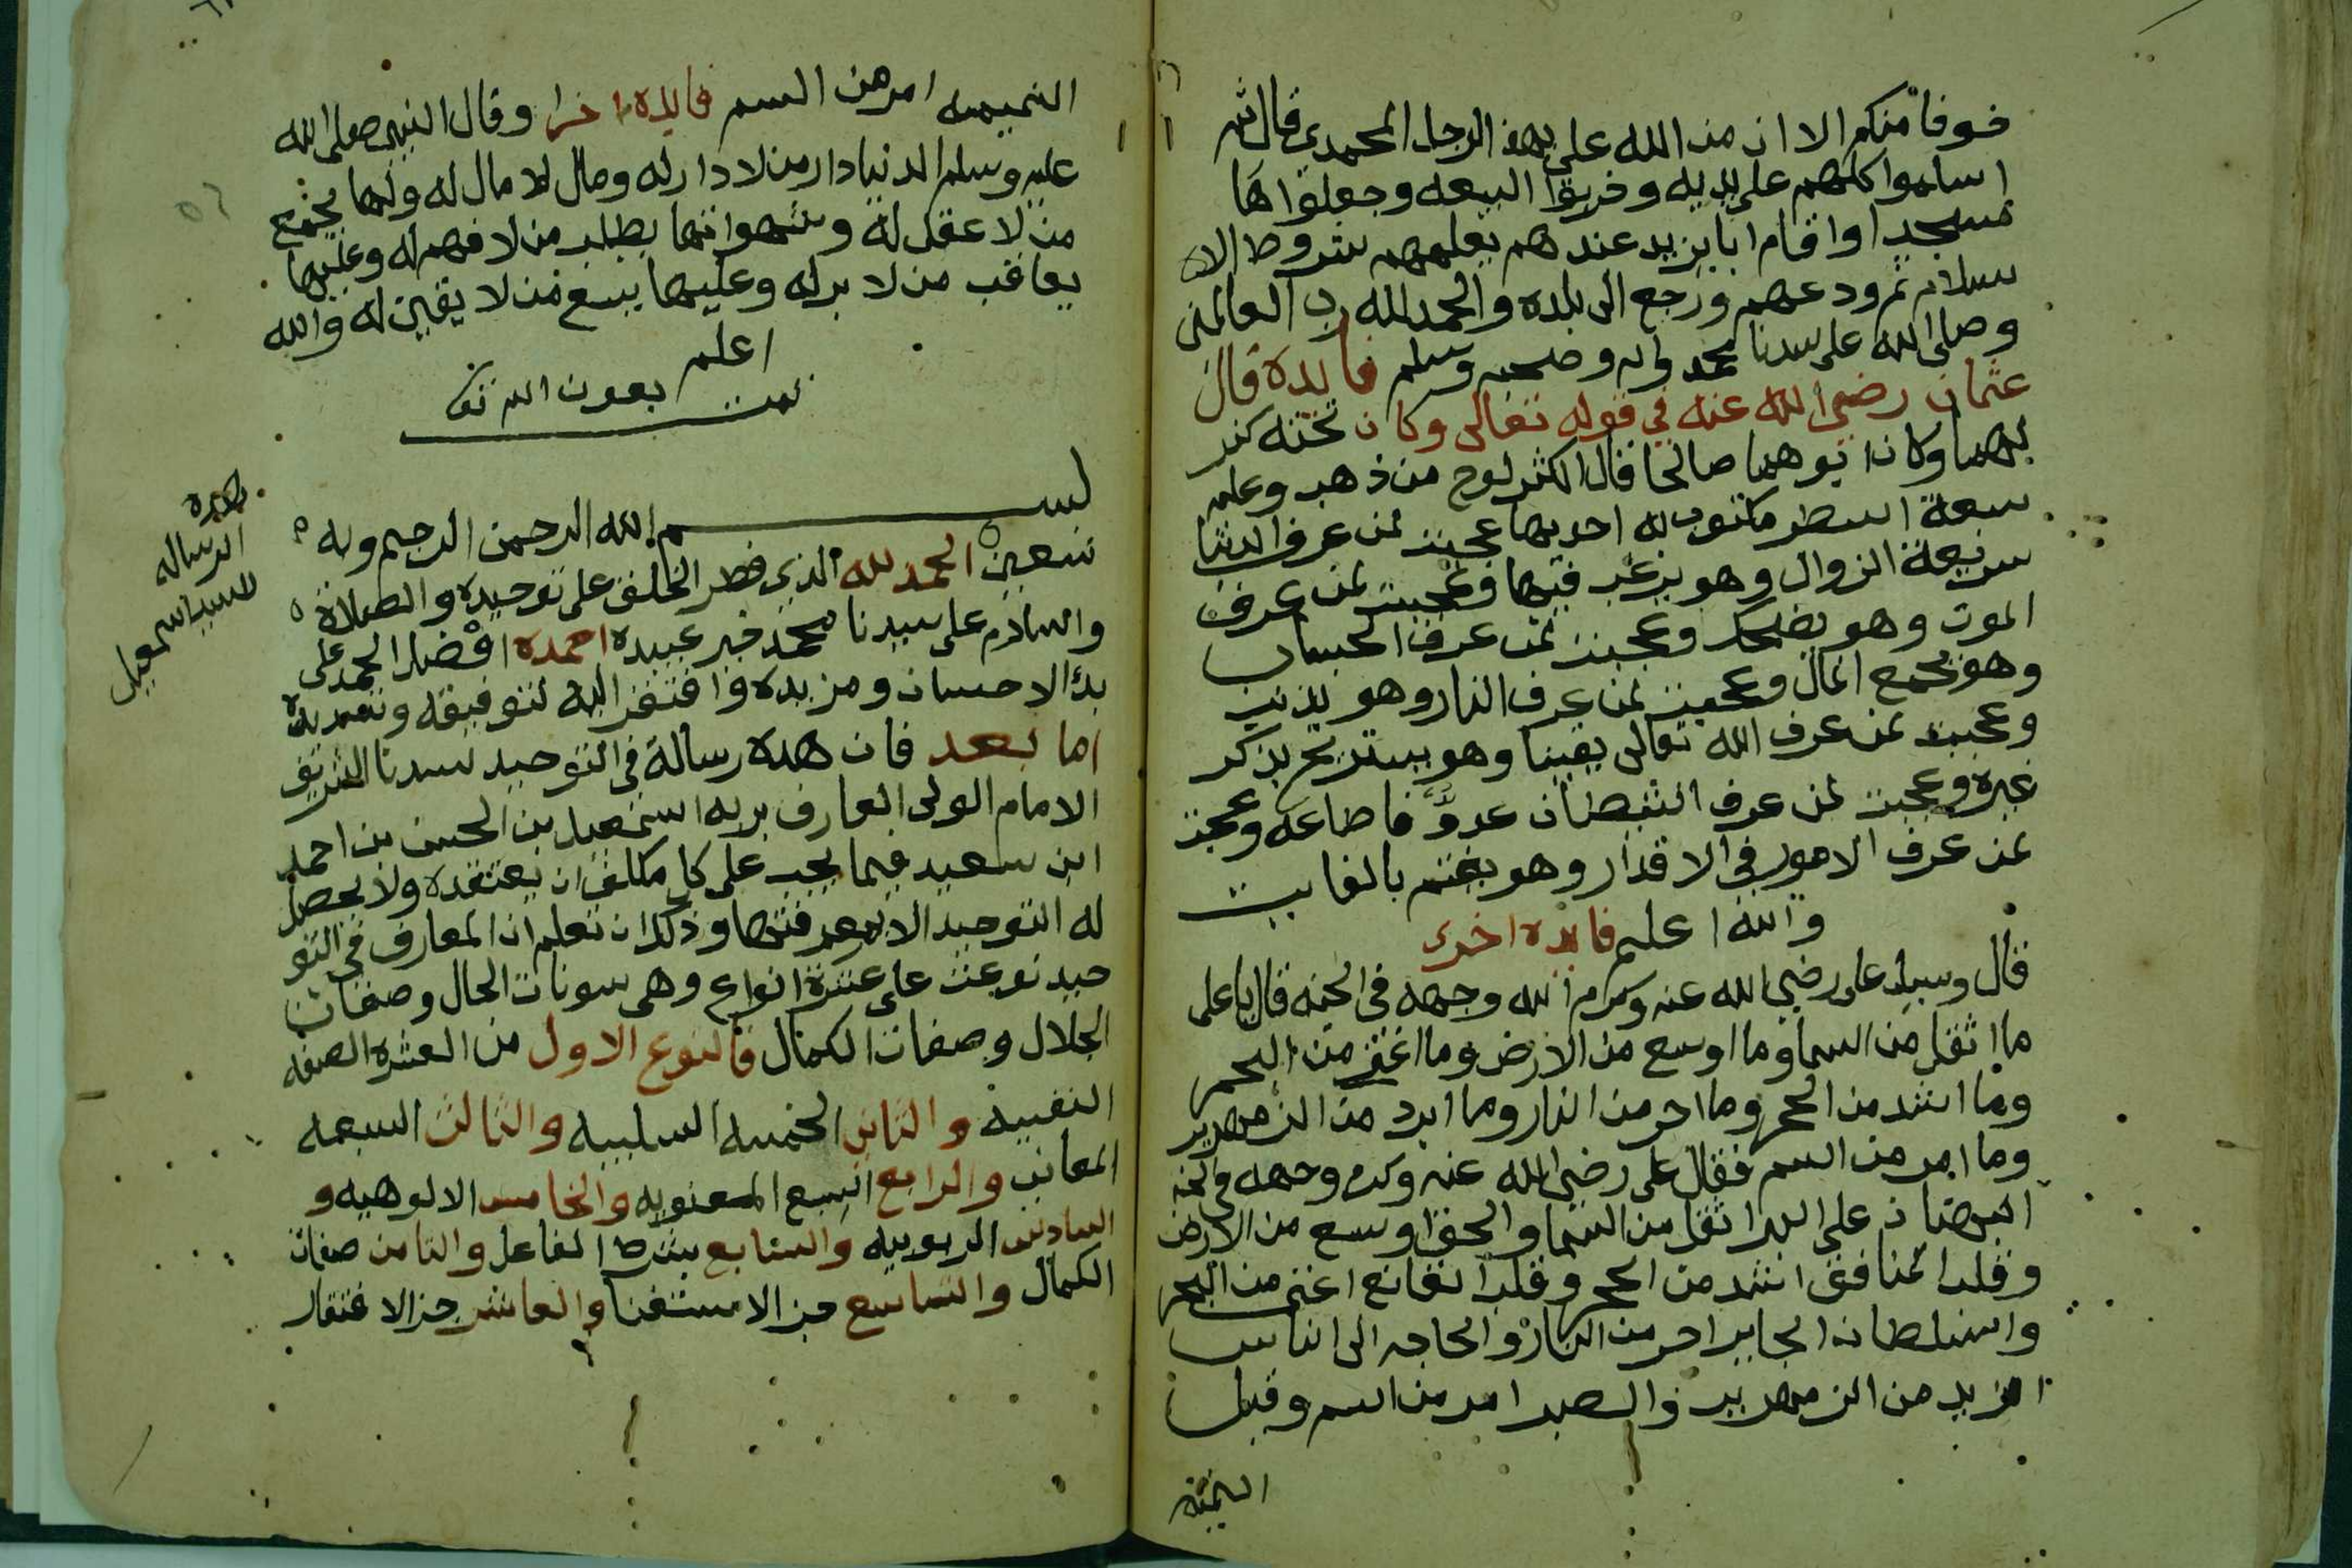 خوفا منكم الا ان من الله على بهذا الرجل المحمدي قال ثم
اسلموا كلهم على يديه وخربوا البيعه وجعلوا ها
مسجدا واقام ابا يزيد عندهم يعلمهم شروط الا
سلام ثم ودعهم ورجع الى بلده والحمد لله رب العالمين
وصلى الله على سيدنا محمد واله وصحبه وسلم فايدة قال
عثمان رضي الله عنه في قوله تعالى وكان تحته كنز
لهما وكان ابوهما صالحا قال الكنز لوح من ذهب وعليه
سبعة اسطر مكتوب له احديها عجبت لمن عرف الدنيا
سريعة الزوال وهو يرغب فيها وعجبت لمن عرف
الموت وهو يضحك وعجبت لمن عرف الحساب
وهو يجمع المال وعجبت لمن عرف النار وهو يذنب
وعجبت لمن عرف الله تعالى يقينا وهو يستريح بذكر
غيره وعجبت لمن عرف الشيطان عدوّ فاطاعه وعجبت
لمن عرف الامور في الاقدار وهو يغتم بالفايت
والله اعلم فايده اخرى
قال وسيل على رضي الله عنه وكرم الله وجهه في الجنه قال يا على
ما اثقل من السما وما اوسع من الارض وما اغنى من البحر
وما اشد من الحجر وما احر من النار وما ابرد من الزمهرير
وما امر من السم فقال على رضي الله عنه وكرم وجهه في الجنه
البهتان على البرا اثقل من السما والحق اوسع من الارض
وقلب المنافق اشد من الحجر وقلب القانع اغنى من البحر
والسلطان الجاير احر من النار والحاجه الى الناس
ابرد من الزمهرير والصبر امر من السم وقيل
النميمه
النميمه امر من السم فايده اخرا وقال النبى صلى الله
عليه وسلم الدنيا دار من لا دار له ومال من لا مال له ولها يجمع
من لا عقل له وشهواتها يطلب من لا فهم له وعليها
يعاقب من لا بر له وعليها يسع من لا يقين له والله
اعلم
تمت بعون الله تعا
بسم الله الرحمن الرحيم وبه
نستعين الحمد لله الذي فطر الخلق على توحيده والصلاة
والسلام على سيدنا محمد خير عبيده احمده افضل الحمد على
بدء الاحسان ومزيده وافتقر اليه لتوفيقه وتسديده
اما بعد فان هذه رسالة في التوحيد لسيدنا الشريف
الامام الولى العارف بربه اسمعيل بن الحسن بن احمد
ابن سعيد فيما يجب على كل مكلف ان يعتقده ولا يحصل
له التوحيد الا بمعرفتها وذلك ان تعلم ان المعارف في التو
حيد نوعت على عشرة انواع وهى سونات الحال وصفات
الجلال وصفات الكمال فالنوع الاول من العشره الصفه
النفسية والثانى الخمسه السلبيه والثالث السبعه
المعانى والرابع السبع المعنويه والخامس الالوهيه و
السادس الربوبيه والسابع شرط الفاعل والثامن صفات
الكمال والتاسع حيز الاستغنا والعاشر حيز الافتقار
هذه
الرساله
للسيد اسمعيل